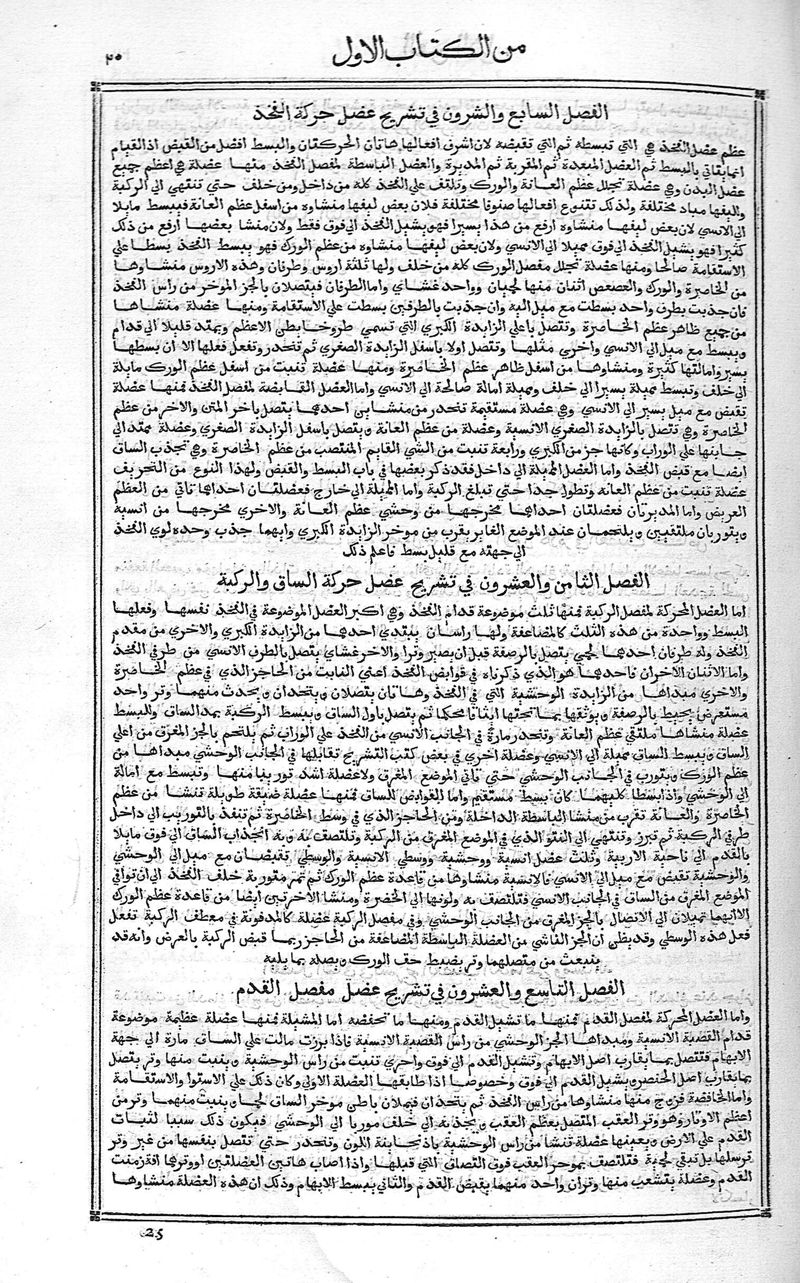 من الكتاب الاول
٢٥
الفصل السابع والشرون في تشريح عضل حركة الفخذ
عظم عضل الفخذ هي التي تبسطه ثم التي تقبضه لان اشرف افعالها هاتان الحركتان والبسط افضل من القبض اذ القيام
انما يتاتي بالبسط ثم العضل المبعدة ثم المقربة ثم المديرة والعضل الباسطة لمفصل الفخذ منها عضلة هي اعظم جميع
عضل البدن وهي عضلة تجلل عظم العانة والورك وتلتف علي الفخذ كله من داخل ومن خلف حتي تنتهي الي الركبة
ولليفها مباد مختلفة ولذلك تتنوع افعالها صنوفا مختلفة فلان بعض ليفها منشاوه من اسفل عظم العانة فيبسط مايلا
الي الانسي لان بعض ليفها منشاوه ارفع من هذا يسيرا فهو يشيل الفخذ الي فوق فقط ولان منشا بعضها ارفع من ذلك
كثيرا فهو يشيل الفخذ الي فوق مميلا الي الانسي ولان بعض ليفها منشاوه من عظم الورك فهو يبسط الفخذ بسطا علي
الاستقامة صالحا ومنها عضلة تجلل مفصل الورك كله من خلف ولها ثلثة اروس وطرفان وهذه الاروس منشاوها
من الخاصرة والورك والعصعص اثنان منها لحميان وواحد غشاي واما الطرفان فيتصلان بالجز الموخر من راس الفخذ
فان جذبت بطرف واحد بسطت مع ميل اليه وان جذبت بالطرفين بسطت علي الاستقامة ومنها عضلة منشاها
من جميع ظاهر عظم الخاصرة وتتصل باعلي الزايدة الكبري التي تسمي طروخابطي الاعظم ويمتد قليلا الي قدام
ويبسط مع ميل الي الانسي واخري مثلها وتتصل اولا باسفل الزايدة الصغري ثم تنحدر وتفعل فعلها الا ان بسطها
يسير وامالتها كثيرة ومنشاوها من اسفل ظاهر عظم الخاصرة ومنها عضلة تنبت من اسفل عظم الورك مايلة
الي خلف وتبسط مميلة يسيرا الي خلف ومميلة امالة صالحة الي الانسي واما العضل القابضة لمفصل الفخذ فمنها عضلة
تقبض مع ميل يسير الي الانسي وهي عضلة مستقيمة تنحدر من منشايين احدهما يتصل باخر المتن والاخر من عظم
الخاصرة وهي تتصل بالزايدة الصغري الانسية وعضلة من عظم العانة ويتصل باسفل الزايدة الصغري وعضلة ممتد الي
جانبها علي الوراب وكانها جز من الكبري ورابعة تنبت من الشي القايم المنتصب من عظم الخاصرة وهي تجذب الساق
ايضا مع قبض الفخذ واما العضل المميلة الي داخل فقد ذكر بعضها في باب البسط والقبض ولهذا النوع من التحريف
عضلة تنبت من عظم العانه وتطول جدا حتي تبلغ الركبة واما المميلة الي خارج فعضلتان احداهما تاتي من العظم
العريض واما المديرتان فعضلتان احداهما مخرجها من وحشي عظم العانة والاخري مخرجها من انسية
ويتوربان ملتقيين ويلتحمان عند الموضع الغاير بقرب من موخر الزايدة الكبري وايهما جذب وحده لوي الفخذ
الي جهته مع قليل بسط فاعلم ذلك
الفصل الثامن والعشرون في تشريح عضل حركة الساق والركبة
اما العضل المحركة لمفصل الركبة فمنها ثلث موضوعة قدام الفخذ وهي اكبر العضل الموضوعة في الفخذ نفسها وفعلها
البسط وواحدة من هذه الثلث كالمضاعفة ولها راسان يبتدي احدهما من الزايدة الكبري والاخري من مقدم
الفخذ وله طرفان احدهما لحمي يتصل بالرصفة قبل ان يصير وترا والاخر غشاي يتصل بالطرف الانسي من طرفي الفخذ
واما الاثنتان الاخران فاحدهما هو الذي ذكرناه في قوابض الفخذ اعني النابت من الحاجز الذي في عظم الخاصرة
والاخري مبداها من الزايدة الوحشية التي في الفخذ وهاتان يتصلان ويتحدان ويحدث منهما وتر واحد
مستعرض يحيط بالرصفة ويوثقها بما تحتها ايثاقا محكما ثم يتصل باول الساق ويبسط الركبة بمد الساق وللبسط
عضلة منشاها ملتقي عظم العانة وتنحدر مارة في الجانب الانسي من الفخذ علي الوراب ثم يلتحم بالجز المغرق من اعلي
الساق ويبسط الساق مميلة الي الانسي وعضلة اخري في بعض كتب التشريح تقابلها في الجانب الوحشي مبداها من
عظم الورك ويتورب في الجانب الوحشي حتي تاتي الموضع المغرق ولا عضلة اشد توريبا منها وتبسط مع امالة
الي الوحشي واذا بسطا كليهما كان بسط مستقيم واما القوابض للساق فمنها عضلة ضيقة طويلة تنشا من عظم
الخاصرة والعانة تقرب من منشا الباسطة الداخلة ومن الحاجز الذي في وسط الخاصرة ثم تنفذ بالتوريب الي داخل
طرفي الركبة ثم تبرز وتنتهي الي النتو الذي في الموضع المغرق من الركبة وتلتصف به وبه انجذاب الساق الي فوق مايلا
بالقدم الي ناحية الاربية وثلث عضل انسية ووحشية ووسطي الانسية والوسطي تقبضان مع ميل الي الوحشي
والوحشية تقبض مع ميل الي الانسي فالانسية منشاوها من قاعدة عظم الورك ثم تمر متوربة خلف الفخذ الي ان توافي
الموضع المغرق من الساق في الجانب الانسي فتلتصق به ولونها الي الخضرة ومنشا الاخرتين ايضا من قاعدة عظم الورك
الا انهما تميلان الي الاتصال بالجز المغرق من الجانب الوحشي وفي مفصل الركبة عضلة كالمدفونة في معطف الركبة تفعل
فعل هذه الوسطي وقد يظن ان الجز الناشي من العضلة الباسطة المضاعفة من الحاجز ربما قبض الركبة بالعرض وانه قد
ينبعث من متصلهما وتر يضبط حق الورك ويصله بما يليه
الفصل التاسع والعشرون في تشريح عضل مفصل القدم
واما العضل المحركة لمفصل القدم فمنها ما تشيل القدم ومنها ما تخفضه اما المشيلة فمنها عضلة عظيمة موضوعة
قدام القصبة الانسية ومبداها الجز الوحشي من راس القصبة الانسية فاذا برزت مالت علي الساق مارة الي جهة
الابهام فتتصل بما يقارب اصل الابهام وتشيل القدم الي فوق واخري تنبت من راس الوحشية وينبت منها وتر يتصل
بما يقارب اصل الخنصر ويشيل القدم الي فوق وخصوصا اذا طابقها العضلة الاولي وكان ذلك علي الاستوا والاستقامة
واما الخافضة فزوج منها منشاوها من راس الفخذ ثم يتحدان فيملان باطن موخر الساق لحما وينبت منهما وتر من
اعظم الاوتار وهو وتر العقب المتصل بعظم العقب ويجذبه الي خلف موربا الي الوحشي فيكون ذلك سببا لثبات
القدم علي الارض ويعينها عضلة تنشا من راس الوحشية باذنجانية اللون وتنحدر حتي تتصل بنفسها من غير وتر
ترسلها بل تبقي لحمية فتلتصف بموخر العقب فوق التصاق التي قبلها واذا اصاب هاتين العضلتين او وترها افة زمنت
القدم وعضلة يتشعب منها وتران واحد منهما يقبض القدم والثاني يبسط الابهام وذلك ان هذه العضلة منشاوها
25